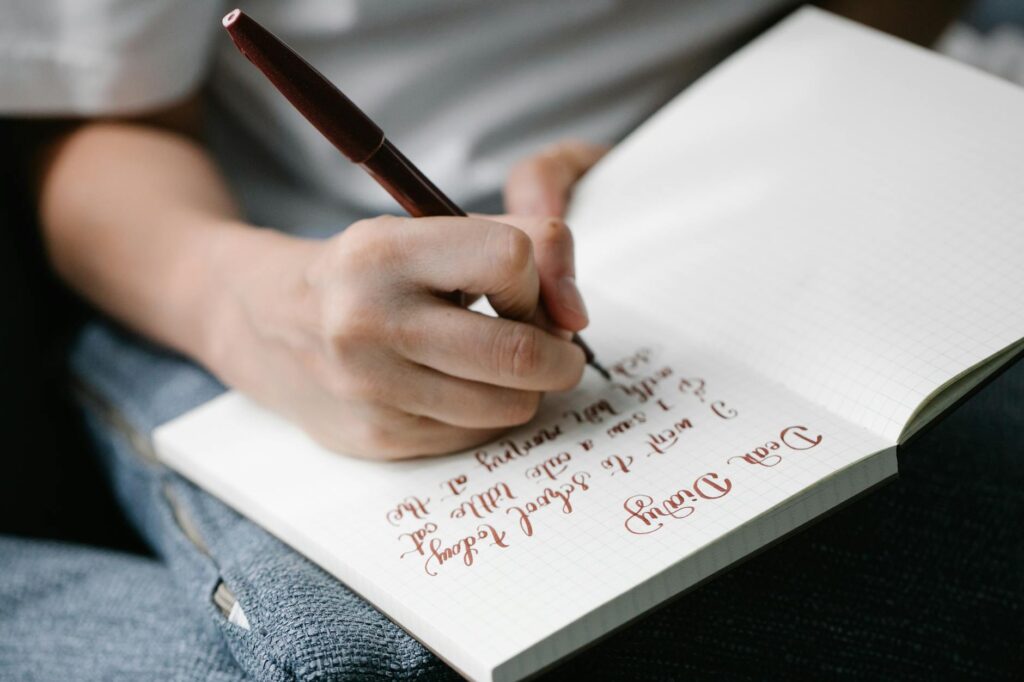 Dear Diary
I went to school today
& I saw a cute little cat
with his mommy at the
sch